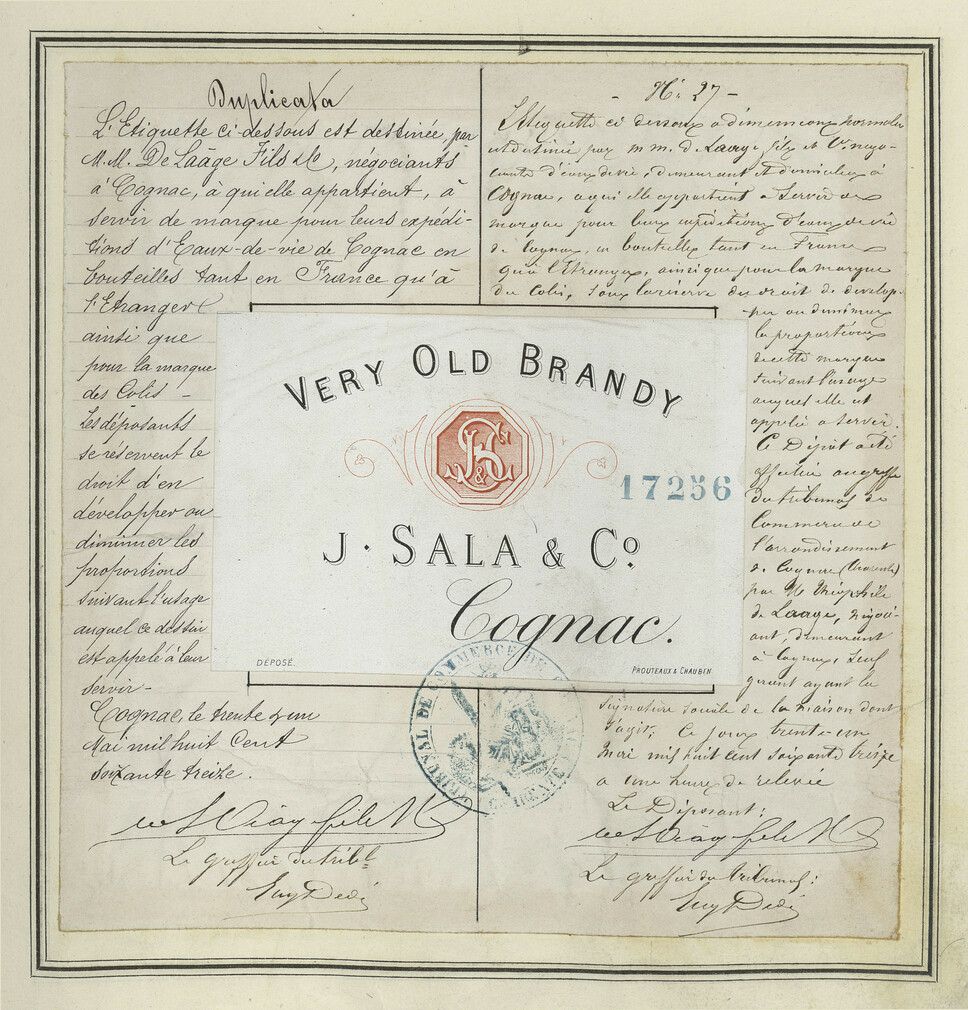 Duplicata
L'Etiquette ci-dessous est destinée, par
M.M. De Laâge Fils & Co, négociants
à Cognac, à qui elle appartient, à
servir de marque pour leurs expédi-
tions d'Eaux-de-vie de Cognac en
bouteilles tant en France qu'à
l'Etranger
ainsi que
pour la marque
des Colis -
Les déposants
se réservent le
droit d'en
développer ou
diminuer les
proportions
suivant l'usage
auquel ce dessin
est appelé à leur
servir -
Cognac, le trente & un
Mai mil huit Cent
soixante treize.
Le greffier du tribl
- No 27 -
L'étiquette ci dessous a dimensions normales
est destinée par m m. de Laage fils et Co négo-
ciants d'eaux de vie, demeurant et domiciliés à
Cognac, a qui elle appartient a servir de
marque pour leurs expéditions d'eaux de vie
de Cognac, en bouteilles tant en France
qu'a l'Etranger, ainsi que pour la marque
du Colis, sous la réserve du droit de develop-
per ou diminuer
les proportions
de cette marque
suivant l'usage
auquel elle est
appelée a servir.
Ce Dépôt a été
effectué au greffe
du tribunal de
Commerce de
l'arrondissement
de Cognac (Charente)
par M Théophile
de Laage, négoci-
ant, demeurant
à Cognac, seul
gérant ayant la
signature sociale de la maison dont
s'agit. Ce jour trente un
mai mil huit cent soixante treize
a une heure de relevée
Le Déposant:
Le greffier du tribunal:
VERY OLD BRANDY
JS & Co
17256
J. SALA & Co
Cognac.
DÉPOSÉ.
PROUTEAUX & CHAUBIN
TRIBUNAL DE COMMERCE DE
(CHARENTE)